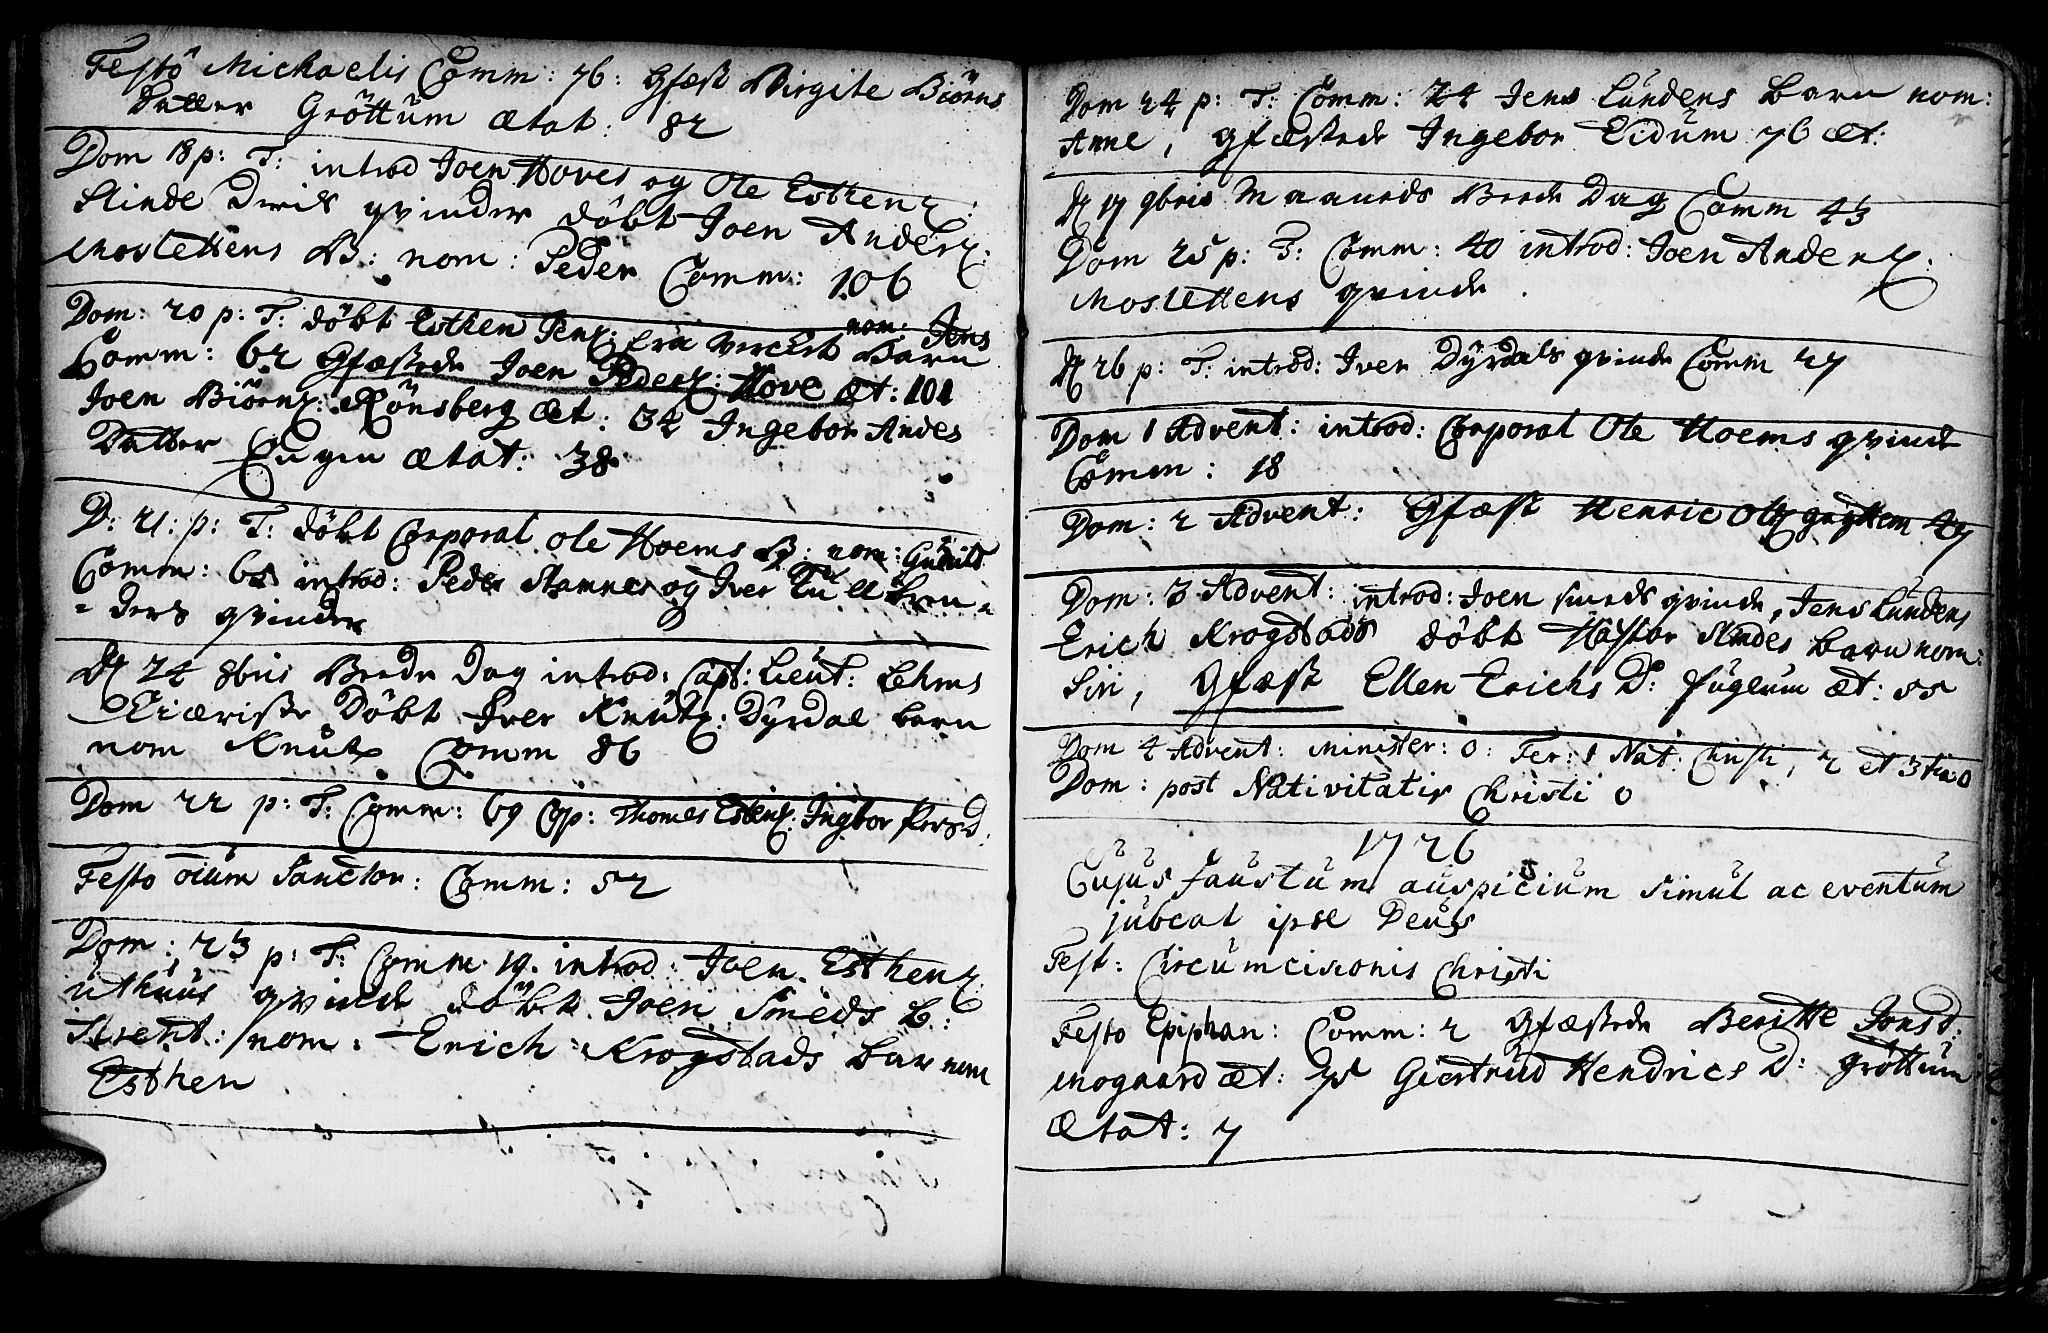 Festo Michaelis Comm: 76: Gfæst Birgite Biörns
Datter Gröttum Ætat: 82
Dom 18 p: T: introd Joen Hoves og Ole Esthenß:
Slinde Deris qvinder döbt Joen Anderß:
Moslettens B: nom: Peder Comm: 106
Dom: 20 p: T: döbt Esthen Jenß: fra Barn nom: Jens
Comm: 62 Gfæstede Joen Pederß: Hove æt: 101
Joen Biörnß: Rönsberg æt: 34 Ingebor Andes
Datter Eugen Ætat: 38
D: 21: p: T: döbt Corporal Ole Hoems B: nom: Gunild
Comm: 61 introd: Peder Stamnes og Iver
ders qvinder
D 24 8bris Brede Dag introd: Capt: Lieut: Lehms
Döbt Iver Knutß: Dyrdal barn
nom Knut Comm 86
Dom 22 p: T: Comm: 69 Cop: Thomes Estenß: Ingbor
Festo oium Sanctor: Comm: 52
Dom: 23 p: T: Comm. 19. introd: Joen Esthenß:
uthuus qvinde döbt Joen Smeds B:
nom: Erich Krogstads bar nom
Esthen
Dom 24 p: T: Comm: 24 Jens Lundens barn nom:
Anne, Gfæstede Ingebor Eidum 76 æt:
D 17 9bris Maaneds Brede Dag Comm 43
Dom 25 p: T: Comm: 40 introd: Joen Anderß:
Moslettens qvinde.
D 26 p: T: introd: Iver Dyrdals qvinde Comm 27
Dom 1 Advent: introd: Corporal Ole Hoems qvinde
Comm: 18
Dom: 2 Advent: Gfæst Henric Olß 47
Dom: 3 Advent: introd: Joen smeds qvinde, Jens Lundens
Erich Krogstads döbt Halstor Andes barn nom:
Siri, Gfæst Ellen Erichs D: fuglum æt: 55
Dom 4 Advent: Minister: 0: Fer: 1 Nat: Christi, 2 et 3tia 0
Dom: post Nativitatis Christi 0
1726
Cujus faustum auspicium simul ac eventum
jubeat ipse Deus
Fest: Circumcisionis Christi
Festo Epiphan: Comm: 2 Gfæstede Beritte Jons D:
Mogaard æt: 75 Giertrud Hendrics D: Gröttum
Ætat: 7